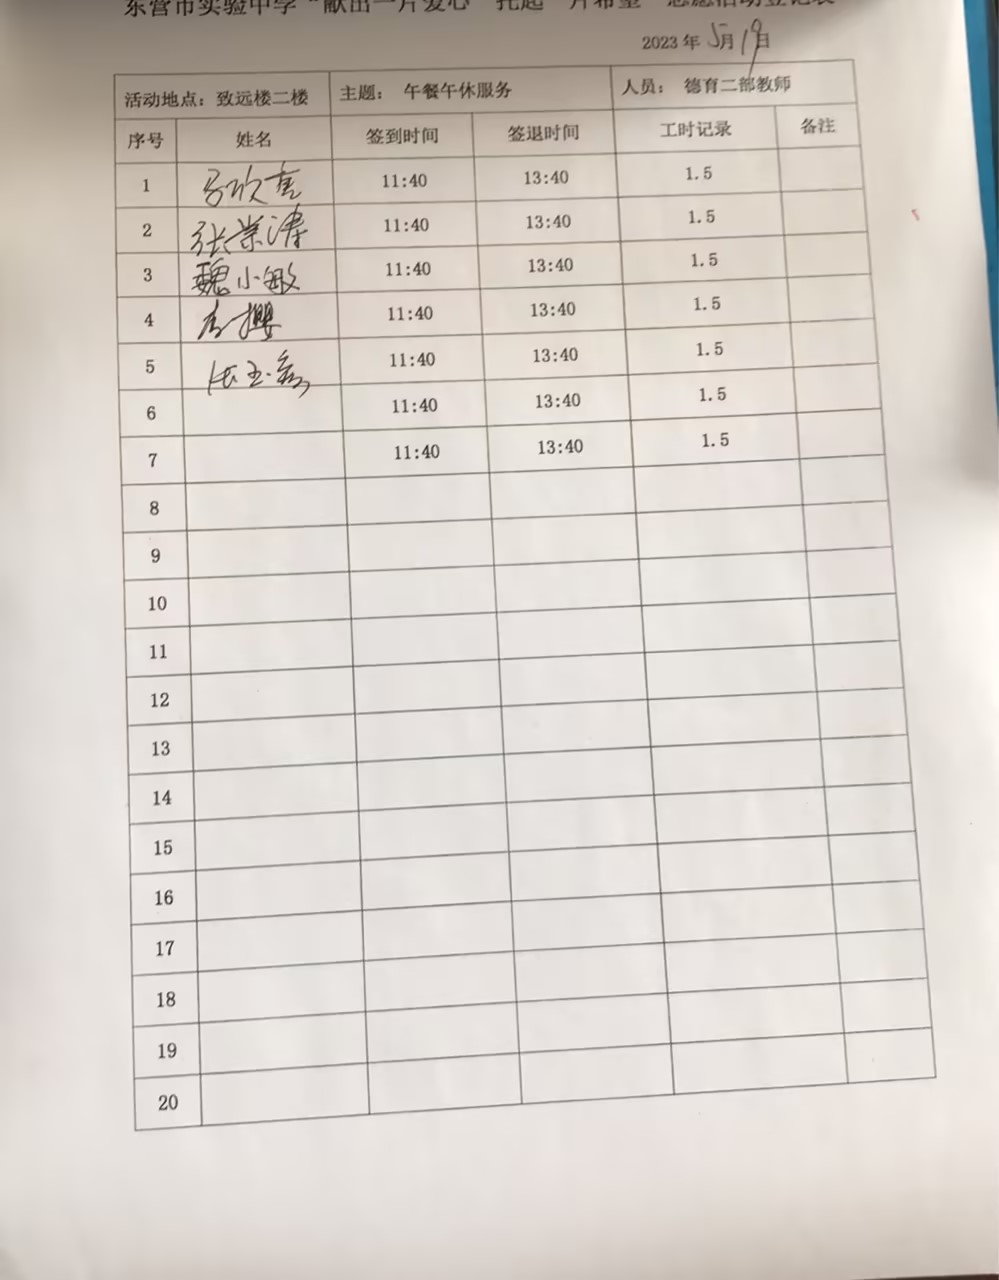 东营市实验中学“献出一片爱心 托起一片希望”志愿活动登记表
2023 年 5月19日
活动地点：致远楼二楼 主题： 午餐午休服务 人员： 德育二部教师
序号 姓名 签到时间 签退时间 工时记录 备注
1 11:40 13:40 1.5
2 张业涛 11:40 13:40 1.5
3 魏小敏 11:40 13:40 1.5
4 11:40 13:40 1.5
5 11:40 13:40 1.5
6 11:40 13:40 1.5
7 11:40 13:40 1.5
8
9
10
11
12
13
14
15
16
17
18
19
20